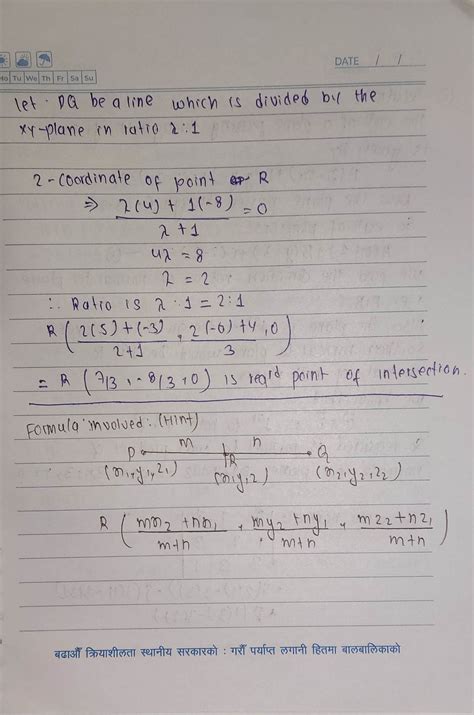 DATE / /
Mo Tu We Th Fr Sa Su
let PQ be a line which is divided by the
xy-plane in ratio λ:1
z-coordinate of point R
⇒ λ(4) + 1(-8) / λ+1 = 0
4λ = 8
λ = 2
∴ Ratio is λ:1 = 2:1
R ( 2(5)+(-3) / 2+1 , 2(-6)+4 / 3 , 0 )
= R (7/3, -8/3, 0) is reqd point of intersection.
Formula involved:. (Hint)
P m n Q
R
(x1,y1,z1) (x,y,z) (x2,y2,z2)
R ( mx2+nx1 / m+n , my2+ny1 / m+n , mz2+nz1 / m+n )
बढाऔँ क्रियाशीलता स्थानीय सरकारको : गरौँ पर्याप्त लगानी हितमा बालबालिकाको